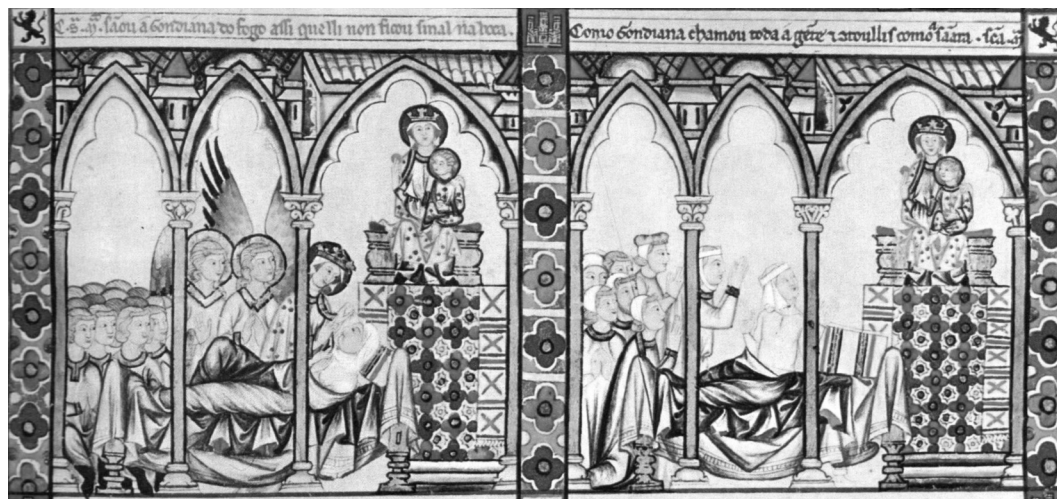 C. s. m̃. sãou a Gondiana do fogo assi que lli non ficou sinal na boca.
Como Gondiana chamou toda a gẽte ⁊ contoullis como a sãara. scã. m̃